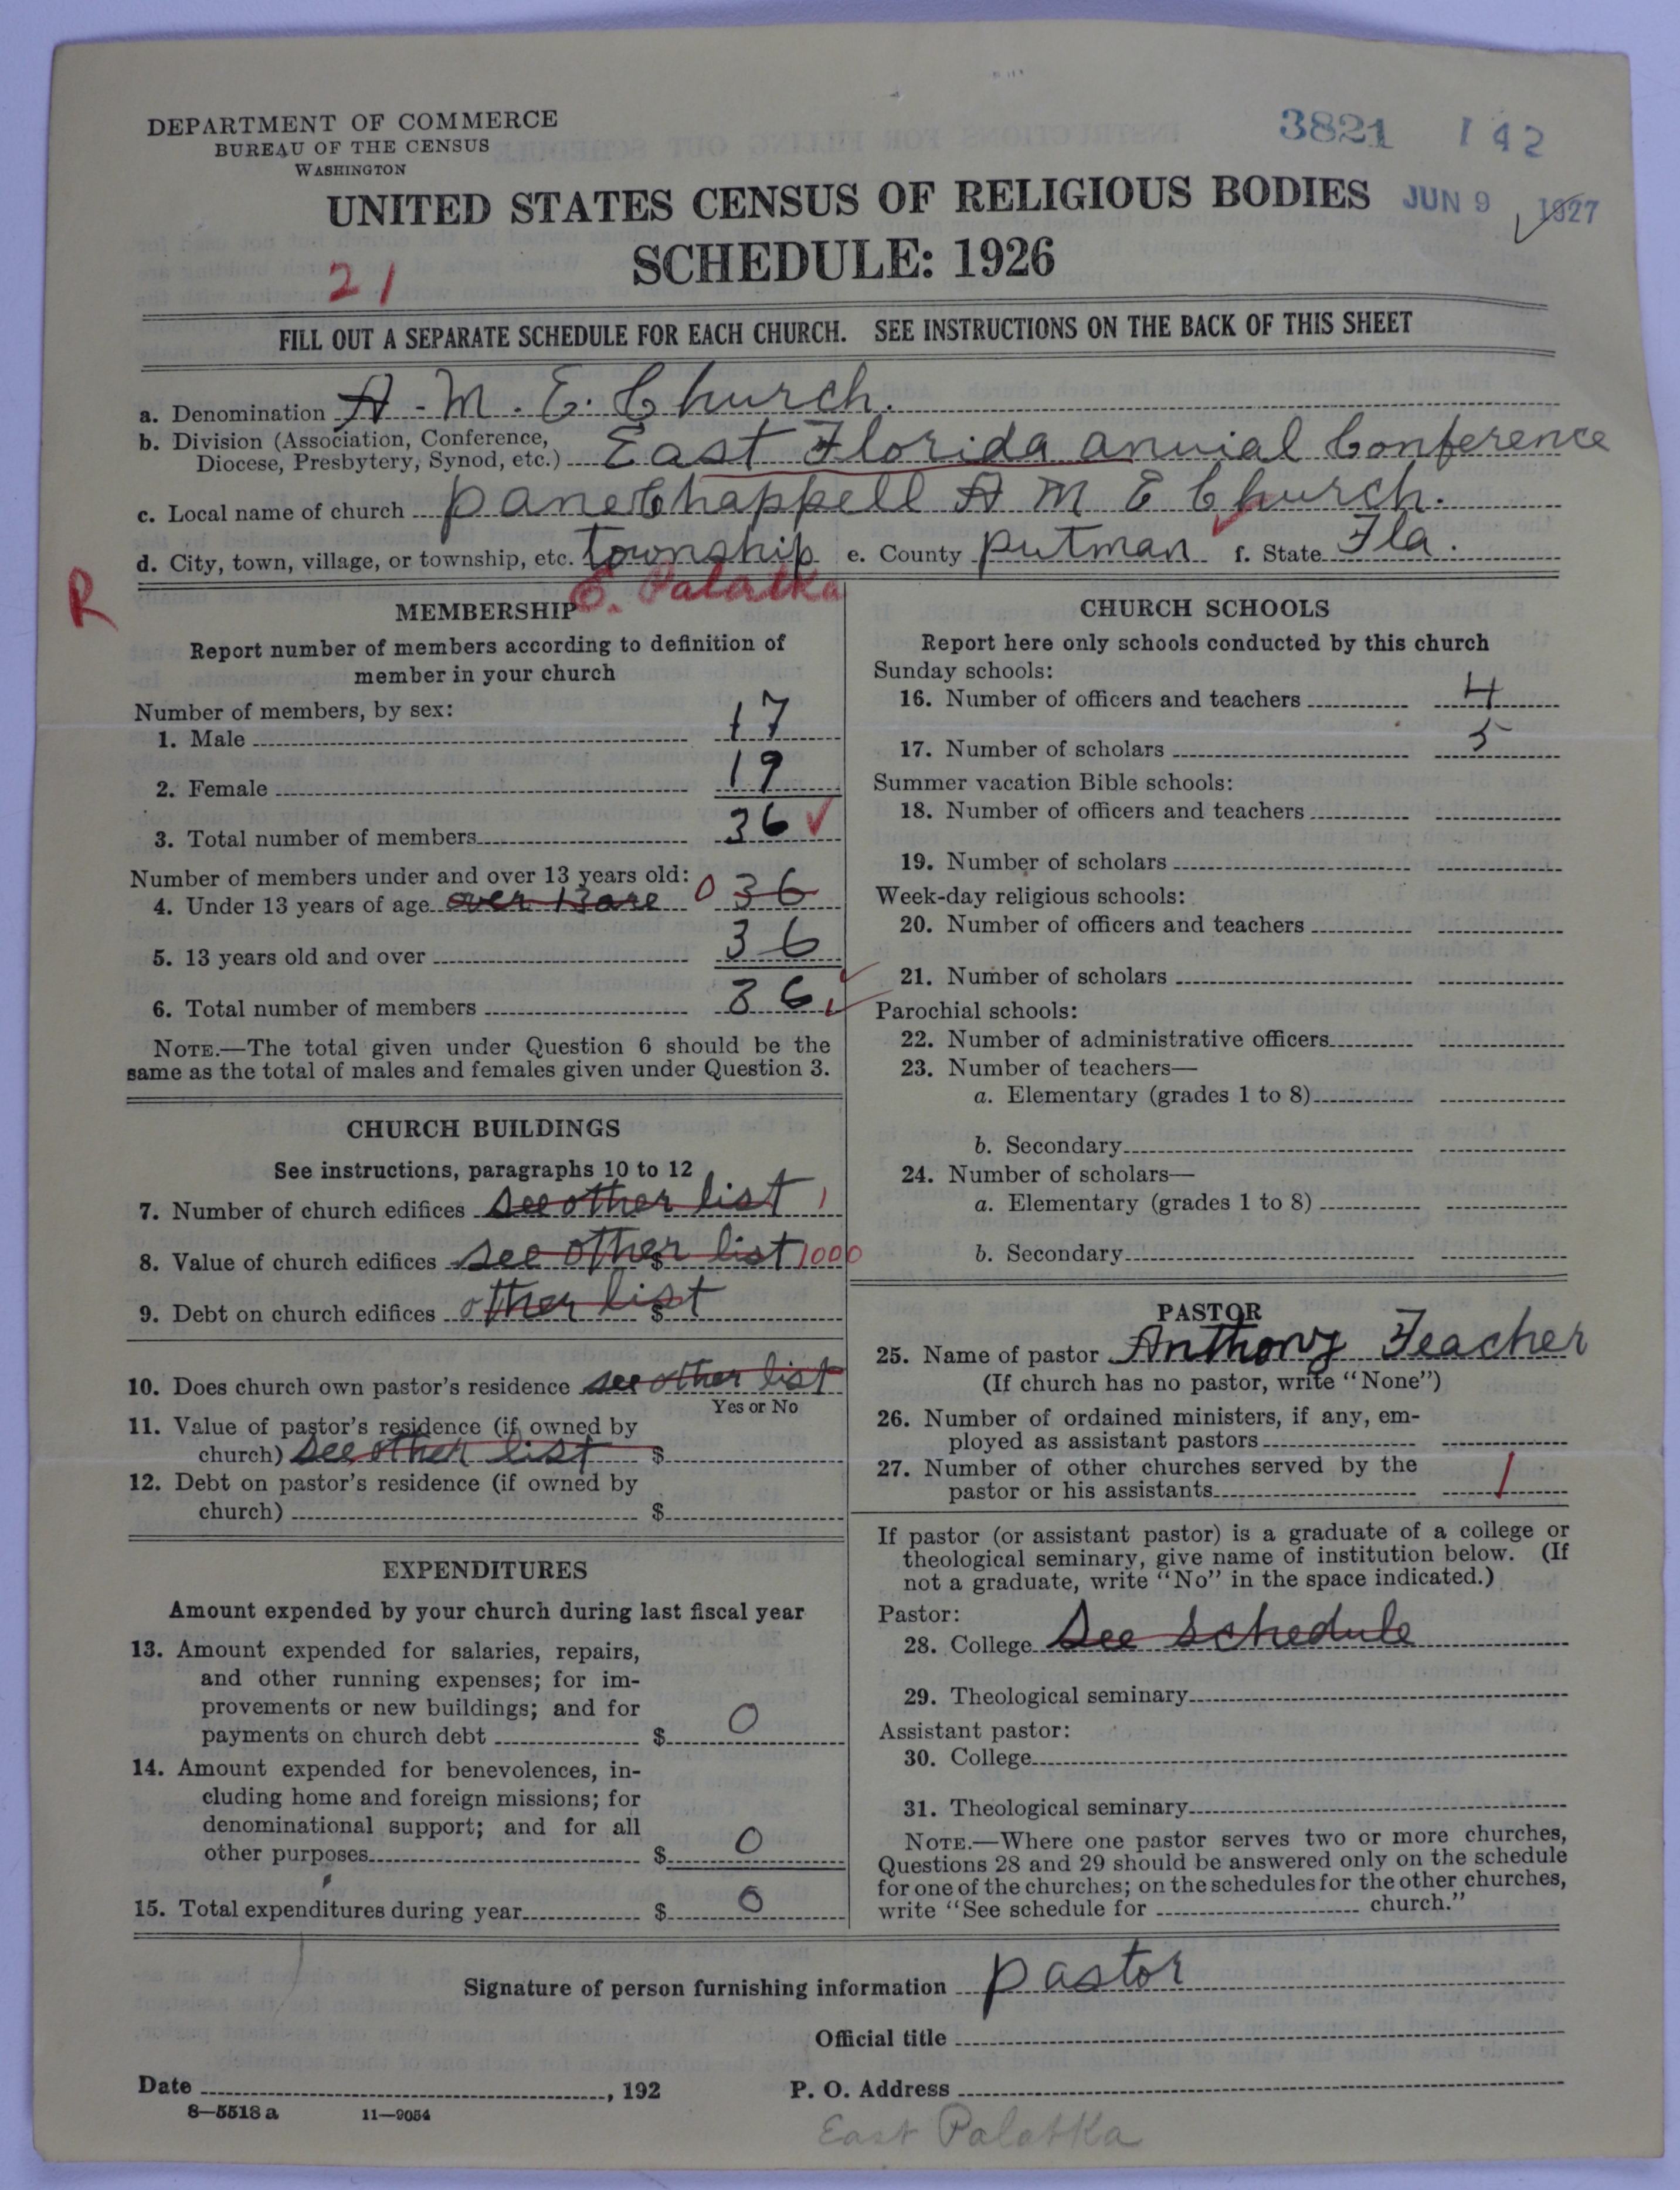 DEPARTMENT OF COMMERCE
BUREAU OF THE CENSUS
WASHINGTON
3821 142
UNITED STATES CENSUS OF RELIGIOUS BODIES
JUN 9 1927
SCHEDULE: 1926
21
FILL OUT A SEPARATE SCHEDULE FOR EACH CHURCH. SEE INSTRUCTIONS ON THE BACK OF THIS SHEET
a. Denomination A. M. E. Church.
b. Division (Association, Conference, Diocese, Presbytery, Synod, etc.) East Florida anuial Conference
c. Local name of church pane Chappell A M E Church.
d. City, town, village, or township, etc. township e. County putman f. State Fla.
R
E. Palatka
MEMBERSHIP
Report number of members according to definition of
member in your church
Number of members, by sex:
1. Male 17
2. Female 19
3. Total number of members 36
Number of members under and over 13 years old:
4. Under 13 years of age over 13 are 0 36
5. 13 years old and over 36
6. Total number of members 36
NOTE.—The total given under Question 6 should be the
same as the total of males and females given under Question 3.
CHURCH BUILDINGS
See instructions, paragraphs 10 to 12
7. Number of church edifices see other list 1
8. Value of church edifices see other list $ 1000
9. Debt on church edifices other list $
10. Does church own pastor's residence see other list
Yes or No
11. Value of pastor's residence (if owned by
church) see other list $
12. Debt on pastor's residence (if owned by
church) $
EXPENDITURES
Amount expended by your church during last fiscal year
13. Amount expended for salaries, repairs,
and other running expenses; for im-
provements or new buildings; and for
payments on church debt $ 0
14. Amount expended for benevolences, in-
cluding home and foreign missions; for
denominational support; and for all
other purposes $ 0
15. Total expenditures during year $ 0
CHURCH SCHOOLS
Report here only schools conducted by this church
Sunday schools:
16. Number of officers and teachers 4
17. Number of scholars 5
Summer vacation Bible schools:
18. Number of officers and teachers
19. Number of scholars
Week-day religious schools:
20. Number of officers and teachers
21. Number of scholars
Parochial schools:
22. Number of administrative officers
23. Number of teachers—
a. Elementary (grades 1 to 8)
b. Secondary
24. Number of scholars—
a. Elementary (grades 1 to 8)
b. Secondary
PASTOR
25. Name of pastor Anthony Feacher
(If church has no pastor, write "None")
26. Number of ordained ministers, if any, em-
ployed as assistant pastors
27. Number of other churches served by the
pastor or his assistants 1
If pastor (or assistant pastor) is a graduate of a college or
theological seminary, give name of institution below. (If
not a graduate, write "No" in the space indicated.)
Pastor:
28. College See schedule
29. Theological seminary
Assistant pastor:
30. College
31. Theological seminary
NOTE.—Where one pastor serves two or more churches,
Questions 28 and 29 should be answered only on the schedule
for one of the churches; on the schedules for the other churches,
write "See schedule for church."
Signature of person furnishing information pastor
Official title
Date , 192
P. O. Address
8—5518 a 11—9054
East Palatka